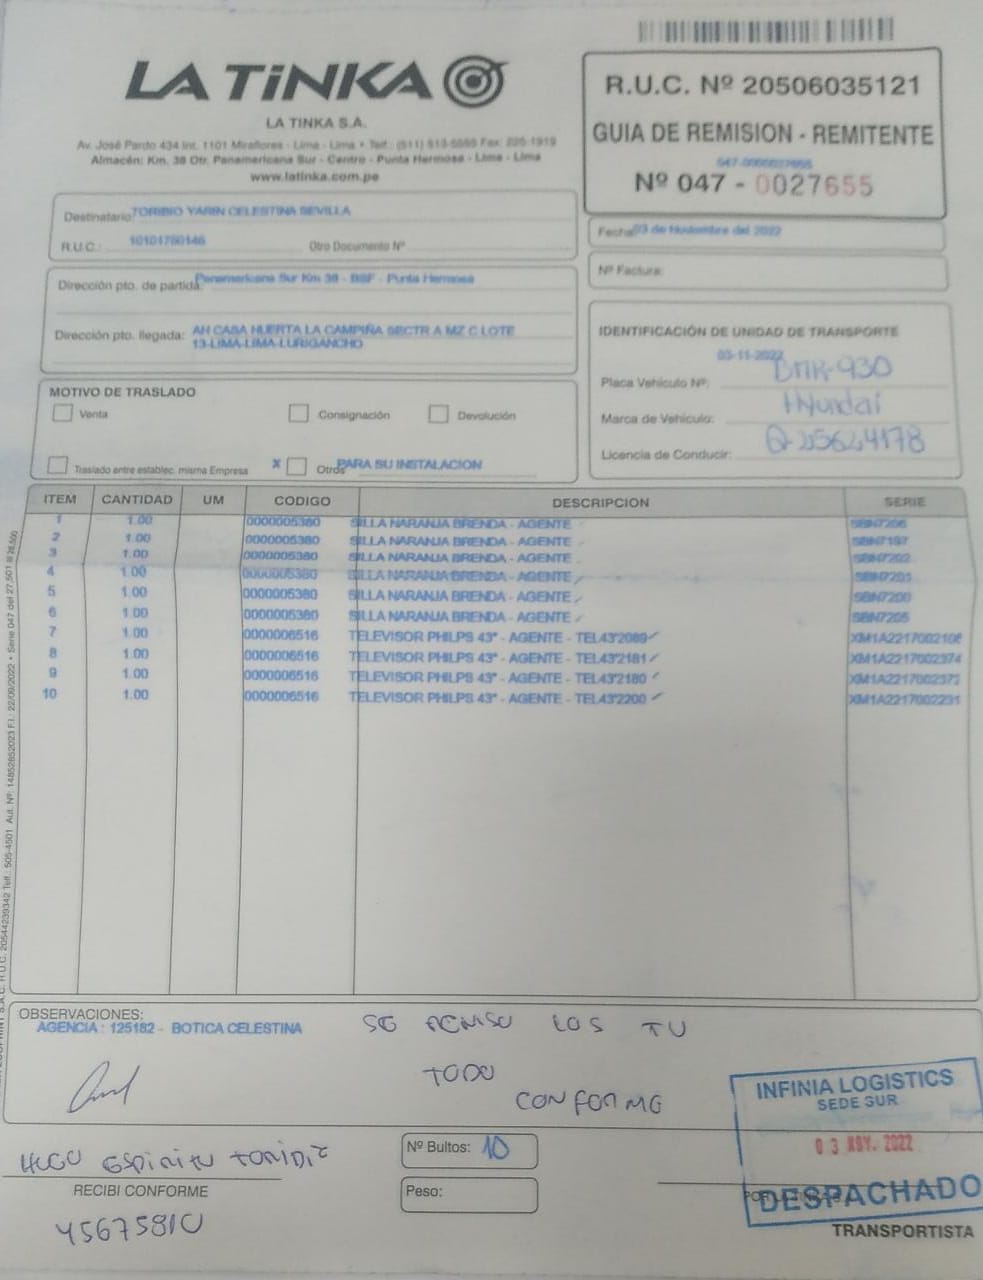 LA TiNKA
LA TINKA S.A.
Av. José Pardo 434 Int. 1101 Miraflores - Lima - Lima • Telf.: (511) 513-5555 Fax: 225-1919
Almacén: Km. 38 Otr. Panamericana Sur - Centro - Punta Hermosa - Lima - Lima
www.latinka.com.pe
R.U.C. Nº 20506035121
GUIA DE REMISION - REMITENTE
047-0000027655
Nº 047 - 0027655
Destinatario: TORIBIO YARIN CELESTINA SEVILLA
R.U.C.: 10101780146 Otro Documento Nº
Fecha: 03 de Noviembre del 2022
Nº Factura:
Dirección pto. de partida: Panamericana Sur Km 38 - BSF - Punta Hermosa
Dirección pto. llegada: AH CASA HUERTA LA CAMPIÑA SECTR A MZ C LOTE
13-LIMA-LIMA-LURIGANCHO
IDENTIFICACIÓN DE UNIDAD DE TRANSPORTE
03-11-2022
Placa Vehículo Nº: -930
Marca de Vehículo: Hyundai
Licencia de Conducir: Q-25624178
MOTIVO DE TRASLADO
Venta Consignación Devolución
Traslado entre establec. misma Empresa X Otros PARA SU INSTALACION
ITEM CANTIDAD UM CODIGO DESCRIPCION SERIE
1 1.00 0000005380 SILLA NARANJA BRENDA - AGENTE SBN7206
2 1.00 0000005380 SILLA NARANJA BRENDA - AGENTE SBN7197
3 1.00 0000005380 SILLA NARANJA BRENDA - AGENTE SBN7202
4 1.00 0000005380 SILLA NARANJA BRENDA - AGENTE SBN7201
5 1.00 0000005380 SILLA NARANJA BRENDA - AGENTE SBN7200
6 1.00 0000005380 SILLA NARANJA BRENDA - AGENTE SBN7205
7 1.00 0000006516 TELEVISOR PHILPS 43" - AGENTE - TEL43'2089 XM1A2217002106
8 1.00 0000006516 TELEVISOR PHILPS 43" - AGENTE - TEL43'2181 XM1A2217002374
9 1.00 0000006516 TELEVISOR PHILPS 43" - AGENTE - TEL43'2180 XM1A2217002373
10 1.00 0000006516 TELEVISOR PHILPS 43" - AGENTE - TEL43'2200 XM1A2217002231
R.U.C. 20544239342 Telf.: 505-4501 Aut. Nº: 14852852023 F.I.: 22/09/2022 • Serie 047 del 27,501 al 28,500
OBSERVACIONES:
AGENCIA : 125182 - BOTICA CELESTINA
SE LOS TU
TODO
CONFORME
INFINIA LOGISTICS
SEDE SUR
03 NOV. 2022
DESPACHADO
HUGO ESPIRITU
RECIBI CONFORME
45675810
Nº Bultos: 10
Peso:
TRANSPORTISTA